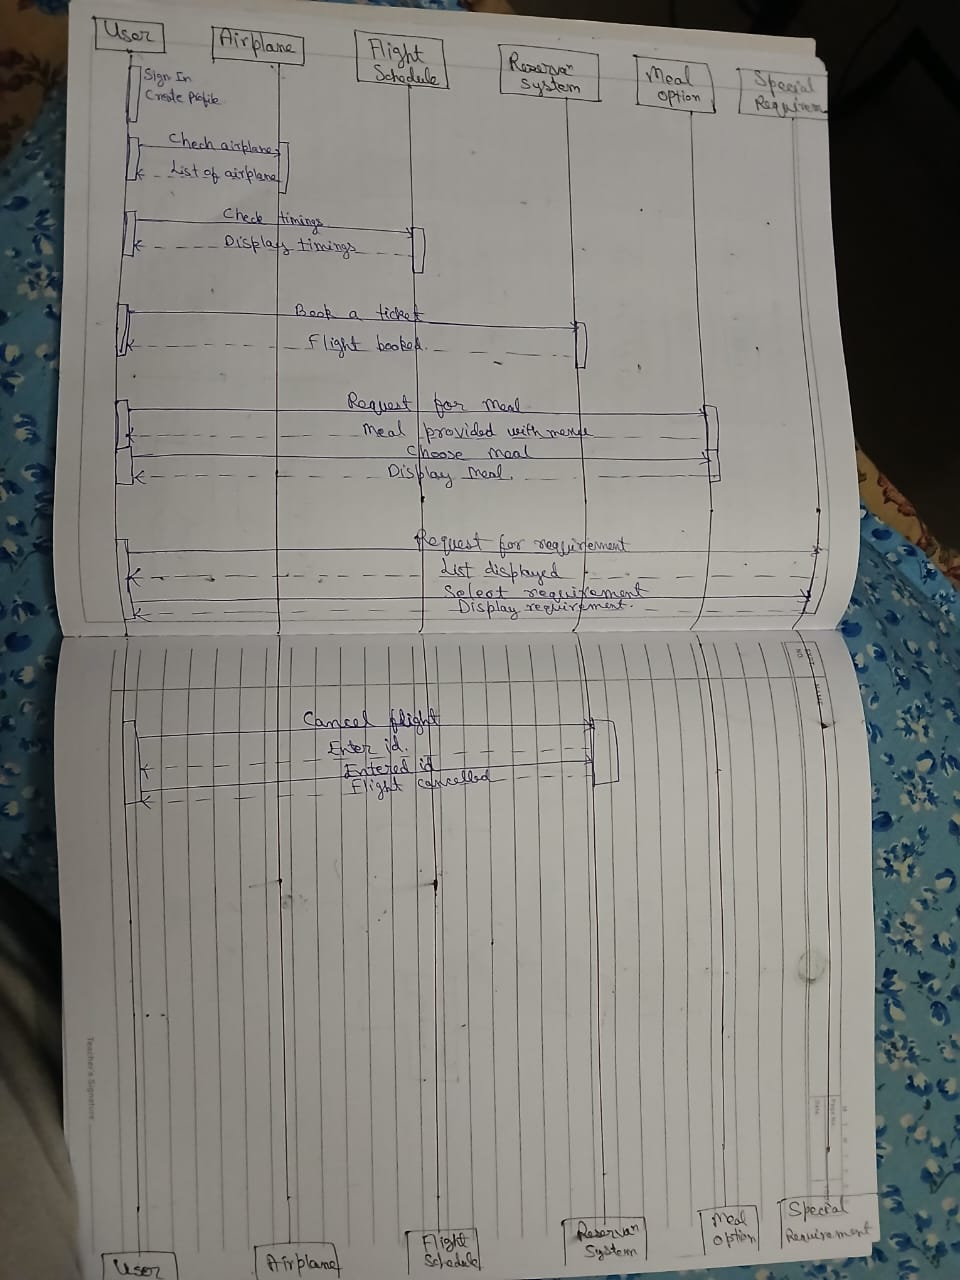 User
Airplane
Flight
Schedule
Reservaⁿ
System
Meal
Option
Special
Requirem
Sign In
Create Profile
Chech airplane
List of airplane
Check timings
Display timings
Book a ticket
Flight booked
Request for Meal
Meal provided with menue
Choose Meal
Display Meal.
Request for requirement
List displayed
Select requirement
Display requirement.
Cancel flight
Enter id.
Entered id
Flight cancelled
Teacher's Signature
Page No.
Date
User
Airplane
Flight
Schedule
Reservaⁿ
System
Meal
Option
Special
Requirement